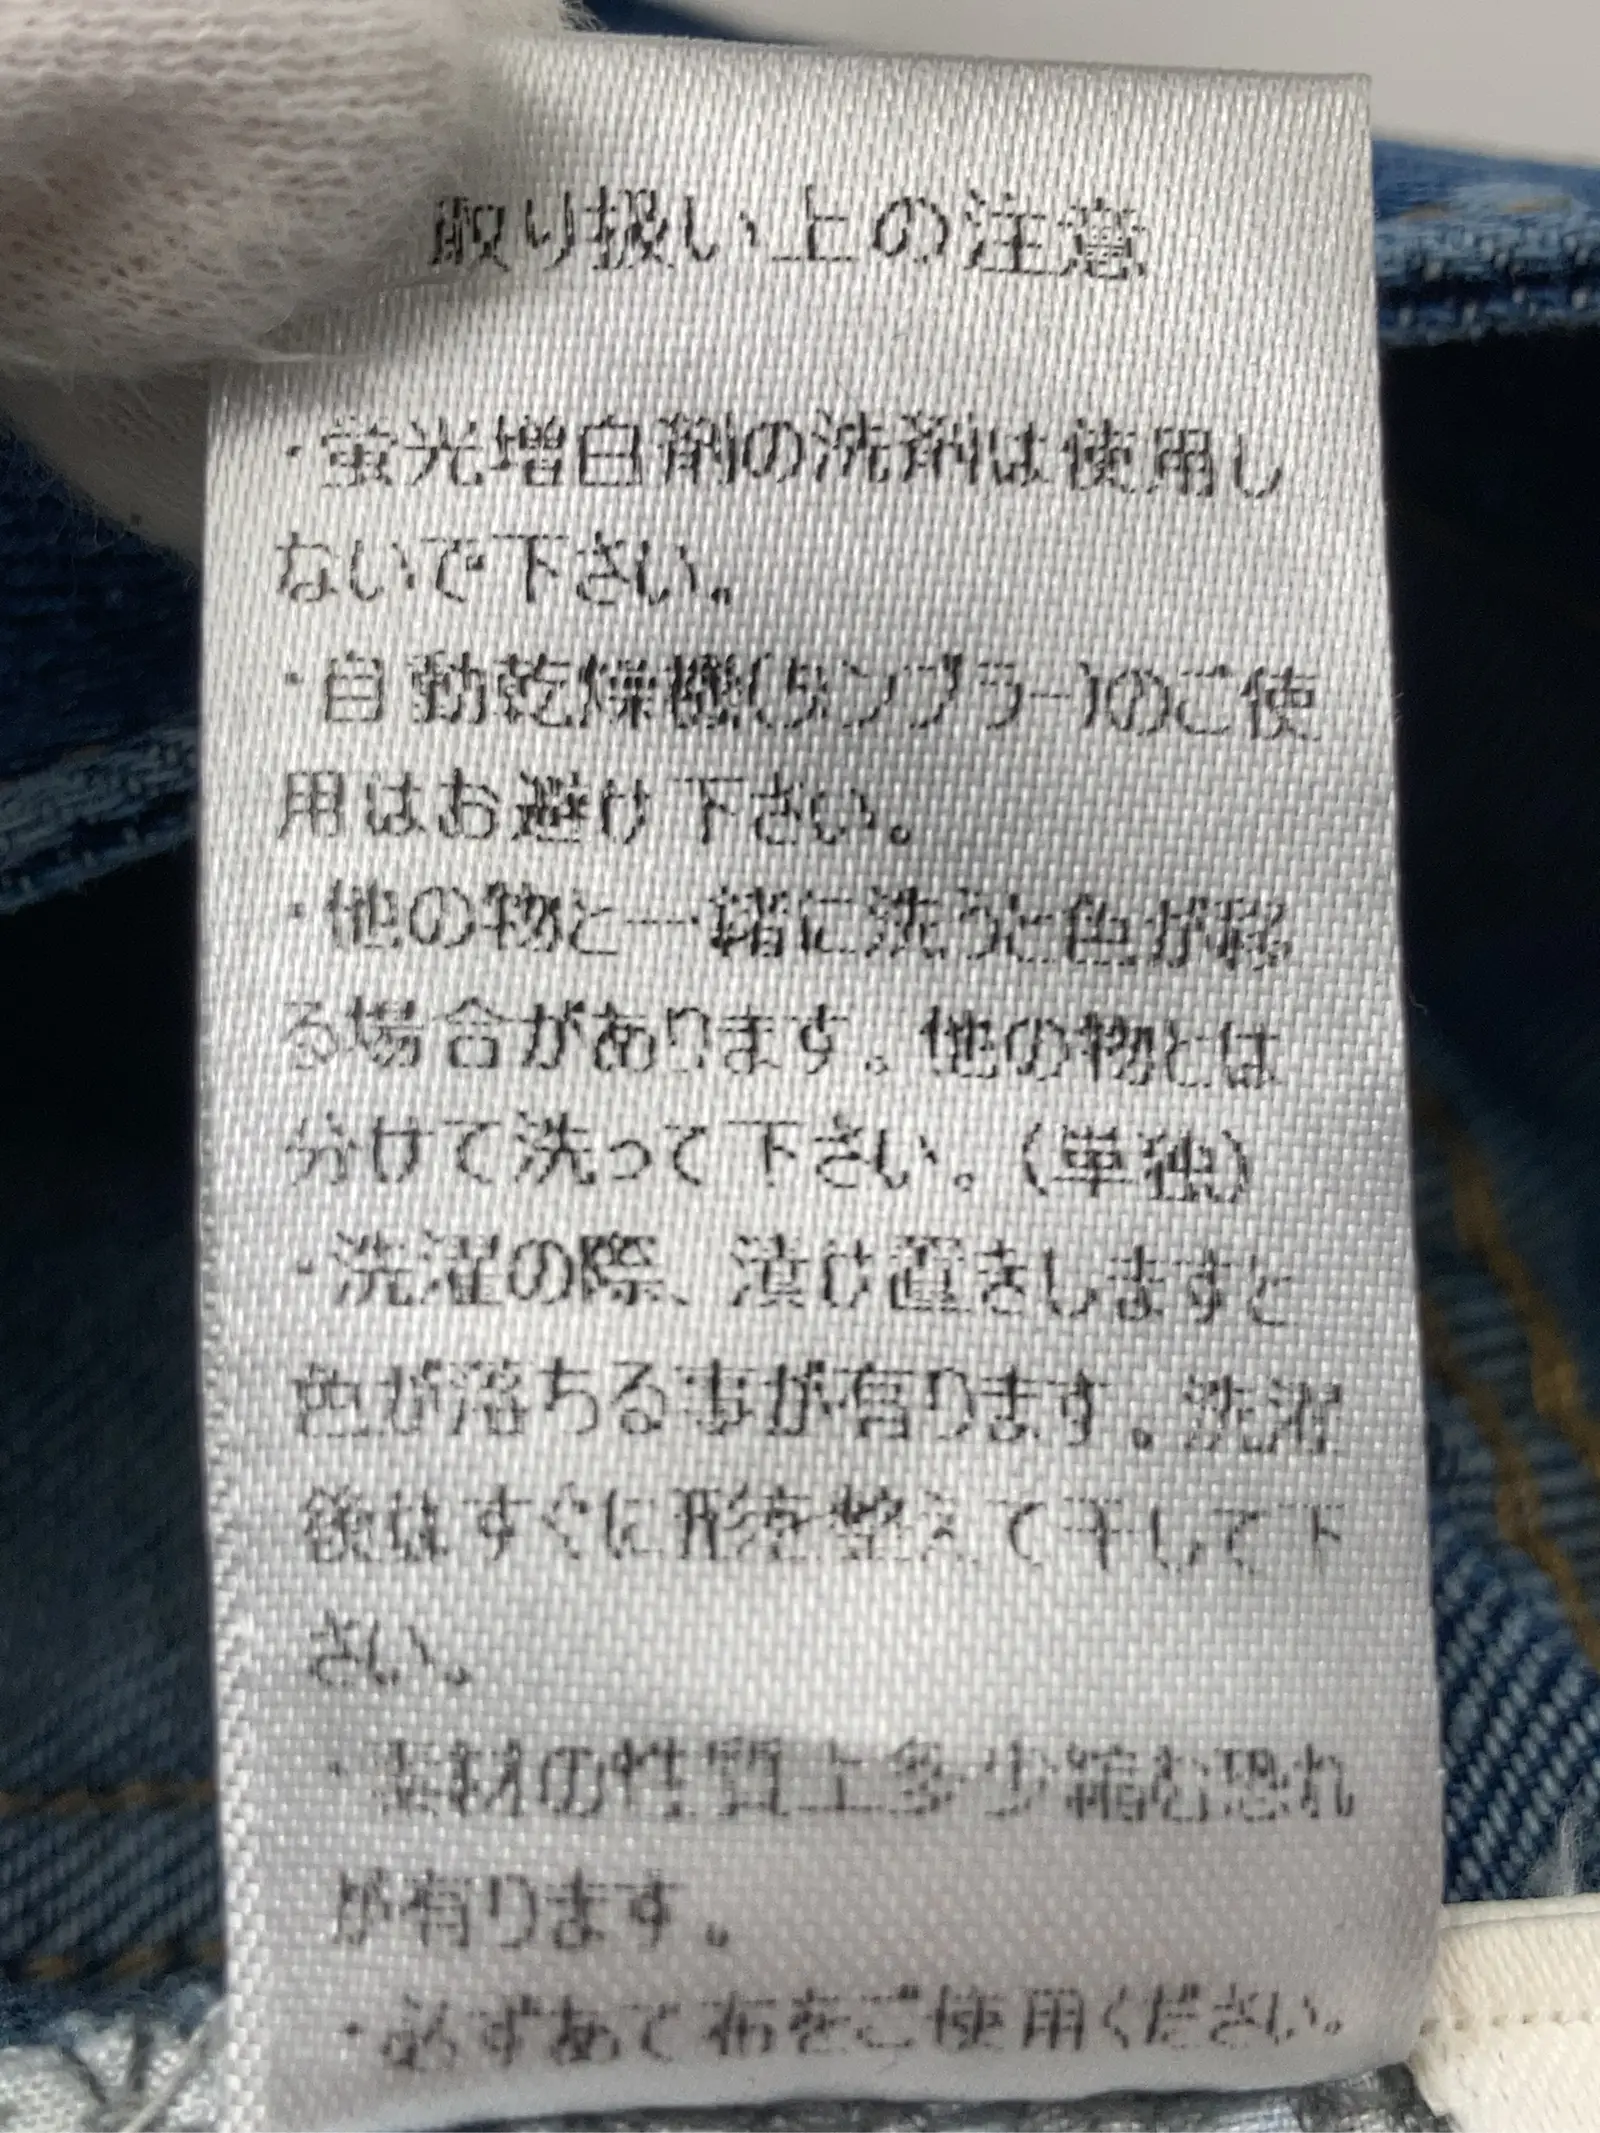 取り扱い上の注意
・蛍光増白剤の洗剤は使用し
ないで下さい。
・自動乾燥機(タンブラー)のご使
用はお避け下さい。
・他の物と一緒に洗うと色が移
る場合があります。他の物とは
分けて洗って下さい。(単独)
・洗濯の際、漬け置きをしますと
色が落ちる事が有ります。洗濯
後はすぐに形を整えて干して下
さい。
・素材の性質上多少縮む恐れ
が有ります。
・必ずあて布をご使用ください。